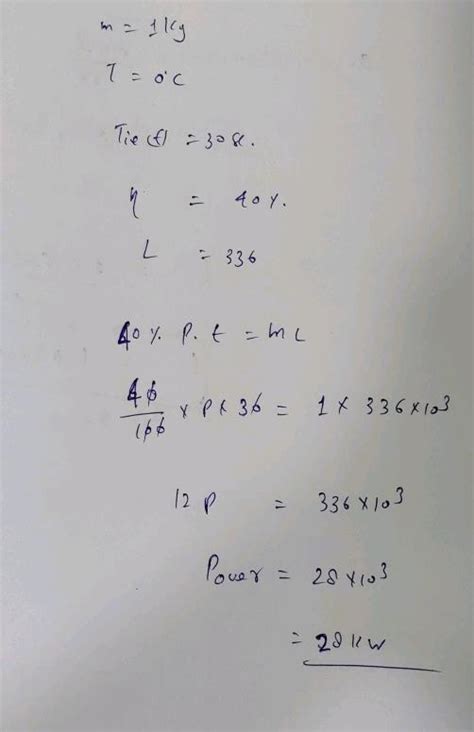 m = 1kg
T = 0°C
Tie (t) = 30 sc.
η = 40%.
L = 336
40% P. t = mL
40/100 × P × 30 = 1 × 336 × 10³
12 P = 336 × 10³
Power = 28 × 10³
= 28 kw